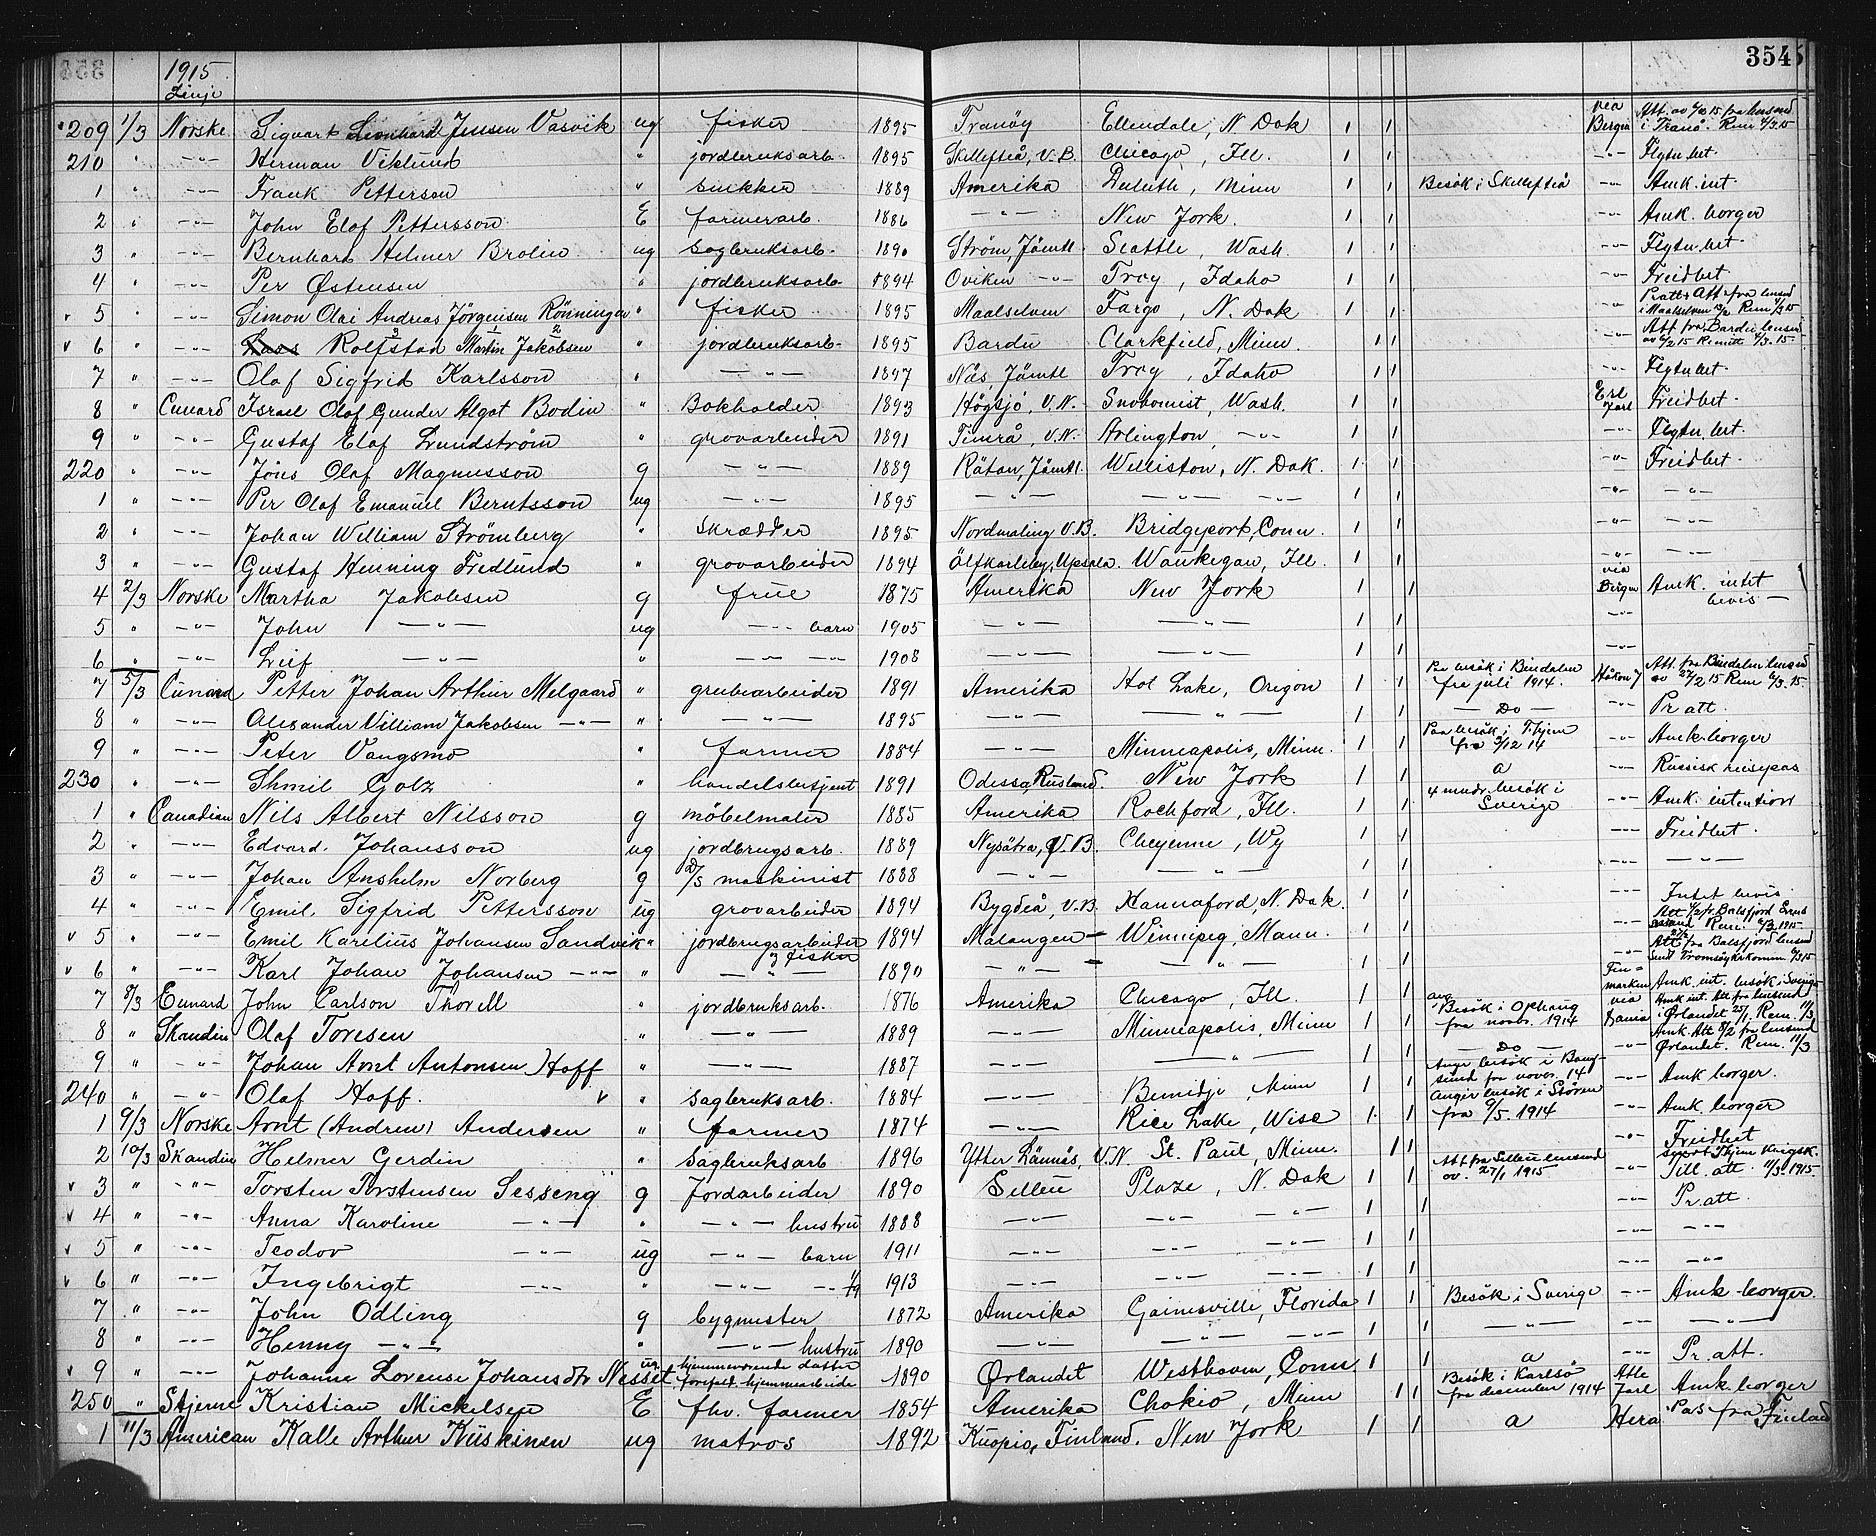 1915 3545
Linje
209 1/3 Norske Sigvart Leonhard Jensen Vasvik ug fisker 1895 Tranöy Ellendale, N. Dak 1 1 via Bergen Att. av 15 fra lensmd i Tranö. Rem 4/3.15
210 " -"- Herman Viklund " jordbruksarb. 1895 Skellefteå, V.B. Chicago, Ill. 1 1 -"- Flytn.bet.
1 " -"- Frank Petterson " snikker 1889 Amerika Duluth, Minn 1 1 Besök i Skellefteå -"- Amk. int.
2 " -"- John Elof Pettersson E farmerarb. 1886 -"- New York. 1 1 -"- Amk. borger
3 " -"- Bernhard Helmer Brolin ug sagbruksarb. 1890 Ström, Jämtl. Seattle, Wash. 1 1 -"- Flytn.bet.
4 " -"- Per Østensen " jordbruksarb. 1894 Oviken -"- Troy, Idaho 1 1 -"- Freidbet.
5 " -"- Simon Olai Andreas Jörgensen Rönningen " fisker 1895 Maalselven Fargo, N. Dak 1 1 -"- Pratt. Att fra lensmd i Maalselven /2 Rem 4/3 15
v 6 " -"- Lars Rolfstad 3 Martin 1 Jakobsen 2 " jordbruksarb. 1895 Bardu Clarkfield, Minn. 1 1 -"- Att fra Bardu lensm av 6/2 15 Remitt 6/3.15.
7 " -"- Olof Sigfrid Karlsson " -"- 1897 Näs, Jämtl Troy, Idaho 1 1 -"- Flytn.bet.
8 " Cunard Israel Olof Gunder Algot Bodin " Bokholder 1893 Högsjö, V.N. Snohomist, Wash. 1 1 Erl Jarl Freidbet.
9 " -"- Gustaf Elof Lundström " grovarbeider 1891 Timrå, V.N. Arlington, -"- 1 1 -"- Flytn.bet.
220 " -"- Jöns Olof Magnusson g -"- 1889 Rätan, Jämtl. Williston, N. Dak. 1 1 -"- Freidbet.
1 " -"- Per Olof Emanuel Berntsson ug -"- 1895 -"- -"- -"- 1 1 -"- -"-
2 " -"- Johan William Strömberg " Skrædder 1895 Nordmaling V.B. Bridgeport, Conn. 1 1 -"- -"-
3 " -"- Gustaf Henning Fredlund " grovarbeider 1894 Älfkarleby, Upsala. Waukegan, Ill. 1 1 -"- -"-
4 2/3 Norske Martha Jakobsen g frue 1875 Amerika New York 1 1 via Bergen Amk. intet bevis -
5 " -"- John -"- ug -"- barn 1905 -"- -"- 1 1 -"-
6 " -"- Leif -"- " -"- -"- 1908 1 1 -"-
7 5/3 Cunard Petter Johan Arthur Melgaard " grubearbeider 1891 Amerika Hot Lake, Oregon 1 1 Paa besök i Bindalen fra juli 1914. Håkon 7 Att. fra Bindalen lensmd av 27/2 15 Rem 6/3.15.
8 " -"- Alexander Villiam Jakobsen -"- " -"- 1895 -"- -"- 1 1 - Do - -"- Pr att.
9 " -"- Peter Vangsmo " farmer 1884 -"- Minneapolis, Minn. 1 1 Paa besök i Thjem fra 9/12 14 -"- Amk. borger
230 " -"- Shmil Golz " handelsbetjent 1891 Odessa, Rusland. New York 1 1 a -"- Russisk reisepas
1 " Canadian Nils Albert Nilsson g möbelmaler 1885 Amerika Rockford, Ill. 1 1 4 mndr. besök i Sverige -"- Amk. intention
2 " -"- Edvard. Johansson ug jordbrugsarb. 1889 Nysätra, V.B. Cheyenne, Wy 1 1 -"- Freidbet.
3 " -"- Johan Anshelm Norberg g D/S maskinist 1888 -"- -"- 1 1 -"- -"-
4 " -"- Emil. Sigfrid Pettersson ug grovarbeider 1894 Bygdeå, V.B. Hannaford, N. Dak. 1 1 -"- Intet bevis.
v 5 " -"- Emil Karelius Johansen Sandvik " jordbrugsarbeider & fisker 1894 Malangen Winnipeg, Mann. 1 1 -"- Att /2 fr. Balsfjord Rem. 6/3.1915.
v 6 " -"- Karl Johan Johansen -"- " -"- 1890 -"- -"- 1 1 -"- Att fra Balsfjord lensmd
7 8/3 Cunard John Carlson Thorell " jordbruksarb. 1876 Amerika Chicago, Ill. 1 1 Finmarken Amk. int. besök i Sverige
8 " Skandin Olaf Toresen " -"- 1889 Minneapolis, Minn 1 1 ang. Besök i Ophaug fra novbr. 1914 via Dania Amk int. Att fra lensmd i Ørlandet 25/1. Rem. 11/3
9 " -"- Johan Arnt Antonsen Hoff " -"- 1887 -"- -"- 1 1 - Do - -"- Amk. Att 8/2 fra lensmd Ørlandet. Rem. 11/3
240 " -"- Olaf Hoff. v " sagbruksarb. 1884 -"- Bemidje, Minn 1 1 Angir besök i Bangsund fra novbr. 14 -"- Amk borger.
1 9/3 Norske Arnt (Andrew) Andersen " farmer 1874 -"- Rice Lake, Wisc 1 1 Angir besök i Stören fra 9/5. 1914 -"- Amk. borger
2 10/3 Skandin Helmer Gerdin " Sagbruksarb 1896 Ytter Lännäs, V.N. St. Paul, Minn. 1 1 -"- Freidbet
v 3 " -"- Torsten Torstensen Sesseng g Jordarbeider 1890 Selleu Plaze, N. Dak 1 1 Att fra Selleu lensmd av. 27/1 1915 -"- Till. att. 11/3.1915.
v 4 " -"- Anna Karoline -"- " -"- hustru 1888 -"- -"- 1 1 -"- Pr. att.
v 5 " -"- Teodor -"- ug -"- barn 1911 -"- -"- -"- 1 1 -"- -"-
v 6 " -"- Ingebrigt -"- " -"- -"- 1/9 1913 -"- -"- -"- 1 1 -"- -"-
7 " -"- John Odling g bygmester 1872 Amerika Gainesville, Florida 1 1 Besök i Sverige -"- Amk. borger.
8 " -"- Henny -"- " -"- hustru 1890 -"- -"- -"- 1 1 -"- -"- -"-
v 9 " -"- Johanne Lorense Johansdtr Nesset ug. hjemmeværende datter forefald. hjemmearbeide 1890 Ørlandet Westhaven, Conn 1 1 a -"- Pr. att.
250 " Stjerne Kristian Mickelsen E fhv. farmer 1854 Amerika Chokio, Minn 1 1 Besök i Karlsö fra desember 1914 Atle Jarl Amk. borger
1 11/3 American Kalle Arthur Kiiskinen ug matros 1892 Kuopio, Finland. New York 1 1 a Hera Pas fra Finland